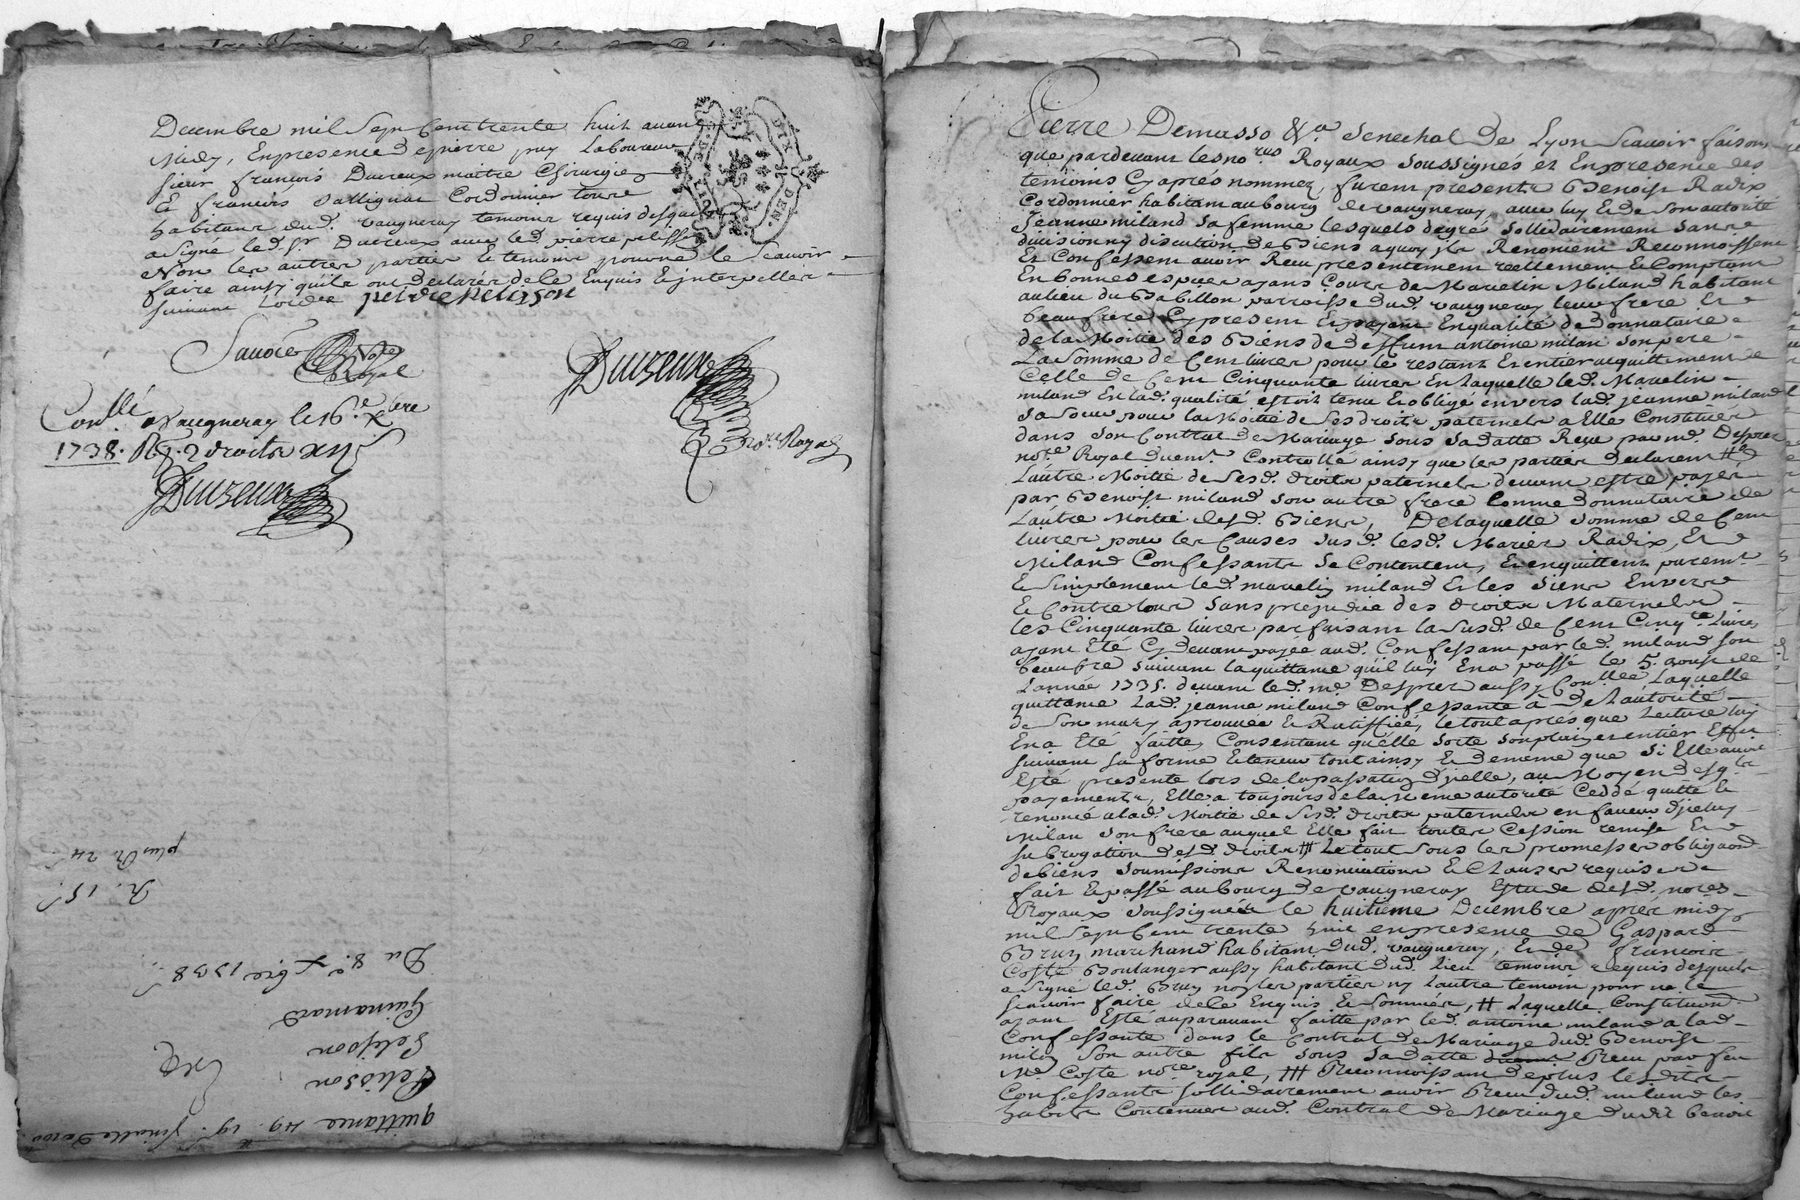 Decembre mil Sept Cent trente huit avant
Midy, En presence de pierre puy Laboureur
sieur françois Ducreux maitre Chirurgien
Et francois Cordonnier tous
habitans dud. vaugneray temoins requis desquels
a signé led. Sr Ducreux avec led. pierre pelisson
Non les autres parties & temoins pour ne le Scavoir
faire ainsy quils ont declarés de ce Enquis & interpellés
suivant Lord.ce pierre pelisson
Savoie Nore
Royal
Duizeux
Nore Royal
Con.llé a Vaugneray le 16.e Xbre
1738. R. 2 droits
Duizeux
plus R. 24 s.
R. 15 s.
Du 8.e Xbre 1738.
Guinamard
Pelisson
Pelisson
quittance 49. 19s.
Pierre Demasso &.a Senechal de Lyon Scavoir faisons
que pardevant les no.res Royaux soussignés et En presence des
temoins Cy aprés nommez, furent presents Benoist Radix
Cordonnier habitant au bourg de vaugneray, avec luy & de son autorité
Jeanne miland sa femme lesquels de gré sollidairement sans
division ny discution de Biens a quoy ils Renoncent Reconnoissent
Et Confessent avoir Receu presentement reellement & Comptant
En bonnes especes ayans Cours de Mavelin Miland habitant
au lieu du Babillon parroisse dud. vaugneray leur frere Et
beaufrere Cy present & payant En qualité de donnataire
de la Moitié des Biens de deffunt antoine milan son pere
La somme de Cent livres pour le restant & entier acquittement de
Celle de Cent Cinquante livres En laquelle led. Mavelin
miland En lad. qualité estoit tenu & obligé envers lad. jeanne miland
sa soeur pour la Moitié de ses droits paternels a Elle Constitués
dans son Contrat de Mariage sous sa datte Receu par me. Desprez
not.e Royal duem.t Controllé ainsy que les parties declarent #
Lautre Moitié de sesd. droits paternels devant estre payés
par Benoist miland son autre frere Comme donnataire de
Lautre Moitié desd. Biens, De laquelle somme de Cent
livres pour les Causes susd. lesd. Mariez Radix, Et
Miland Confessants se Contentent, & en quittent purem.t
& simplement led. mavelin miland Et les siens Envers
& Contre tous sans prejudice des droits Maternels
les Cinquante livres parfaisant la susd. de Cent Cinq.te livres
ayant Eté Cy devant payée aud. Confessant par led. miland son
beaufre suivant la quittance quil luy En a passé le 5. aoust de
L'année 1735. devant led. me. Desprez aussy Con.llée Laquelle
quittance Lad. jeanne miland Confessante a de L'autorité
de Son mary aprouvée & Ratiffiée, le tout aprés que Lecture luy
En a Eté faitte, Consentant qu'elle sorte son plein & entier Effet
suivant sa forme & teneur tout ainsy & de meme que si Elle avoit
Esté presente lors de la passation d'jcelle, au Moyen desq.ls
payements, Elle a toujours de la Meme autorité Ceddé quitté &
renoncé a lad. Moitié de sesd. droits paternels en faveur djceluy
Milan son frere auquel Elle fait toutes Cession remise Et
subrogation desd. droits ### Le tout sous les promesses obligaons
de biens soumissions Renonciations & Clauses requises
fait & passé au bourg de vaugneray Estude desd. nores
Royaux soussignés le huitieme Decembre aprés midy
mil Sept Cent trente huit en presence de Gaspard
Bruy marchand habitant dud. vaugneray, & de francois
Coste Boulanger aussy habitant dud. lieu temoins requis desquels
a signé led. Bruy non les parties ny L'autre temoin pour ne le
scavoir faire de ce Enquis & Sommés, # Laquelle Constitution
ayant Esté auparavant faitte par led. antoine miland a lad.
Confessante dans le Contrat de Mariage dud. Benoist
milan Son autre fils sous sa datte Receu par feu
Me. Coste nore royal, ### Reconnoissant de plus lesdits
Confessants sollidairement avoir Receu dud. miland les
habits Contenues aud. Contrat de Mariage dudit benoit